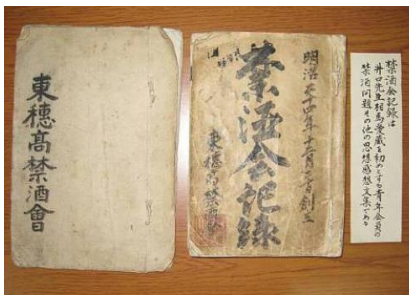 東穂高禁酒會
明治廿四年十二月一日創立
禁酒会記録
東穂高禁酒會
禁酒会記録は
井口先生相馬愛蔵を初めとする青年会員の
禁酒問題その他の思想感想文集である